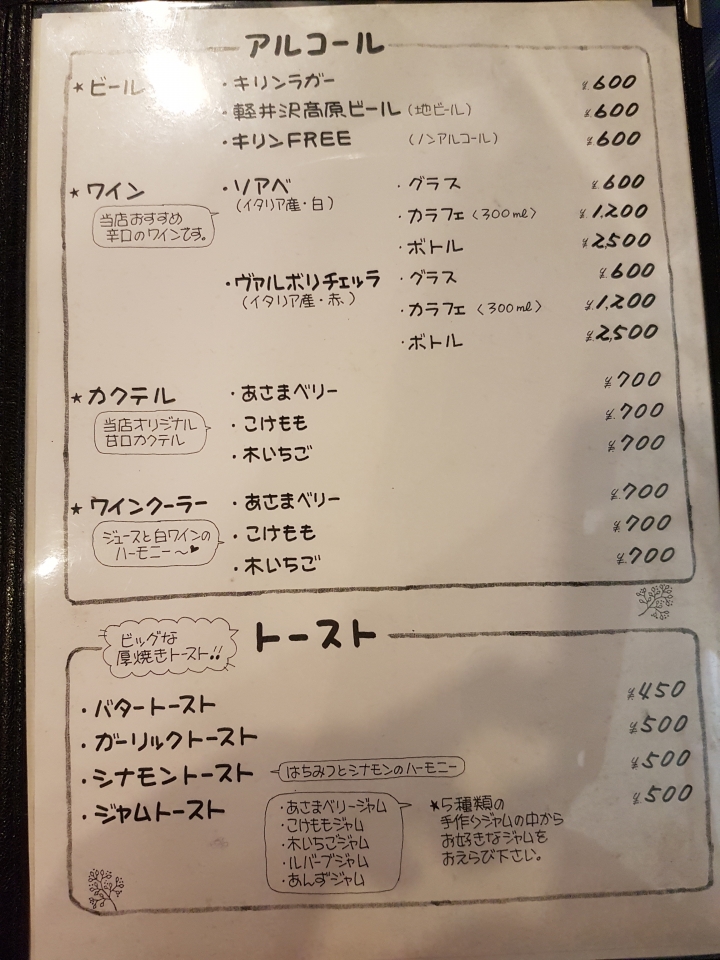 アルコール
★ビール ・キリンラガー ¥.600
・軽井沢高原ビール(地ビール) ¥.600
・キリンFREE (ノンアルコール) ¥.600
★ワイン ・ソアベ ・グラス ¥.600
(イタリア産・白)
当店おすすめ
辛口のワインです。
・カラフェ〈300ml〉 ¥.1,200
・ボトル ¥.2,500
・ヴァルポリチェッラ ・グラス ¥.600
(イタリア産・赤)
・カラフェ〈300ml〉 ¥.1,200
・ボトル ¥.2,500
★カクテル ・あさまベリー ¥.700
当店オリジナル
甘口カクテル
・こけもも ¥.700
・木いちご ¥.700
★ワインクーラー ・あさまベリー ¥.700
ジュースと白ワインの
ハーモニー〜♥
・こけもも ¥.700
・木いちご ¥.700
ビッグな
厚焼きトースト!!
トースト
・バタートースト ¥.450
・ガーリックトースト ¥.500
・シナモントースト はちみつとシナモンのハーモニー ¥.500
・ジャムトースト ¥.500
・あさまベリージャム
・こけももジャム
・木いちごジャム
・ルバーブジャム
・あんずジャム
★5種類の
手作りジャムの中から
お好きなジャムを
おえらび下さい。